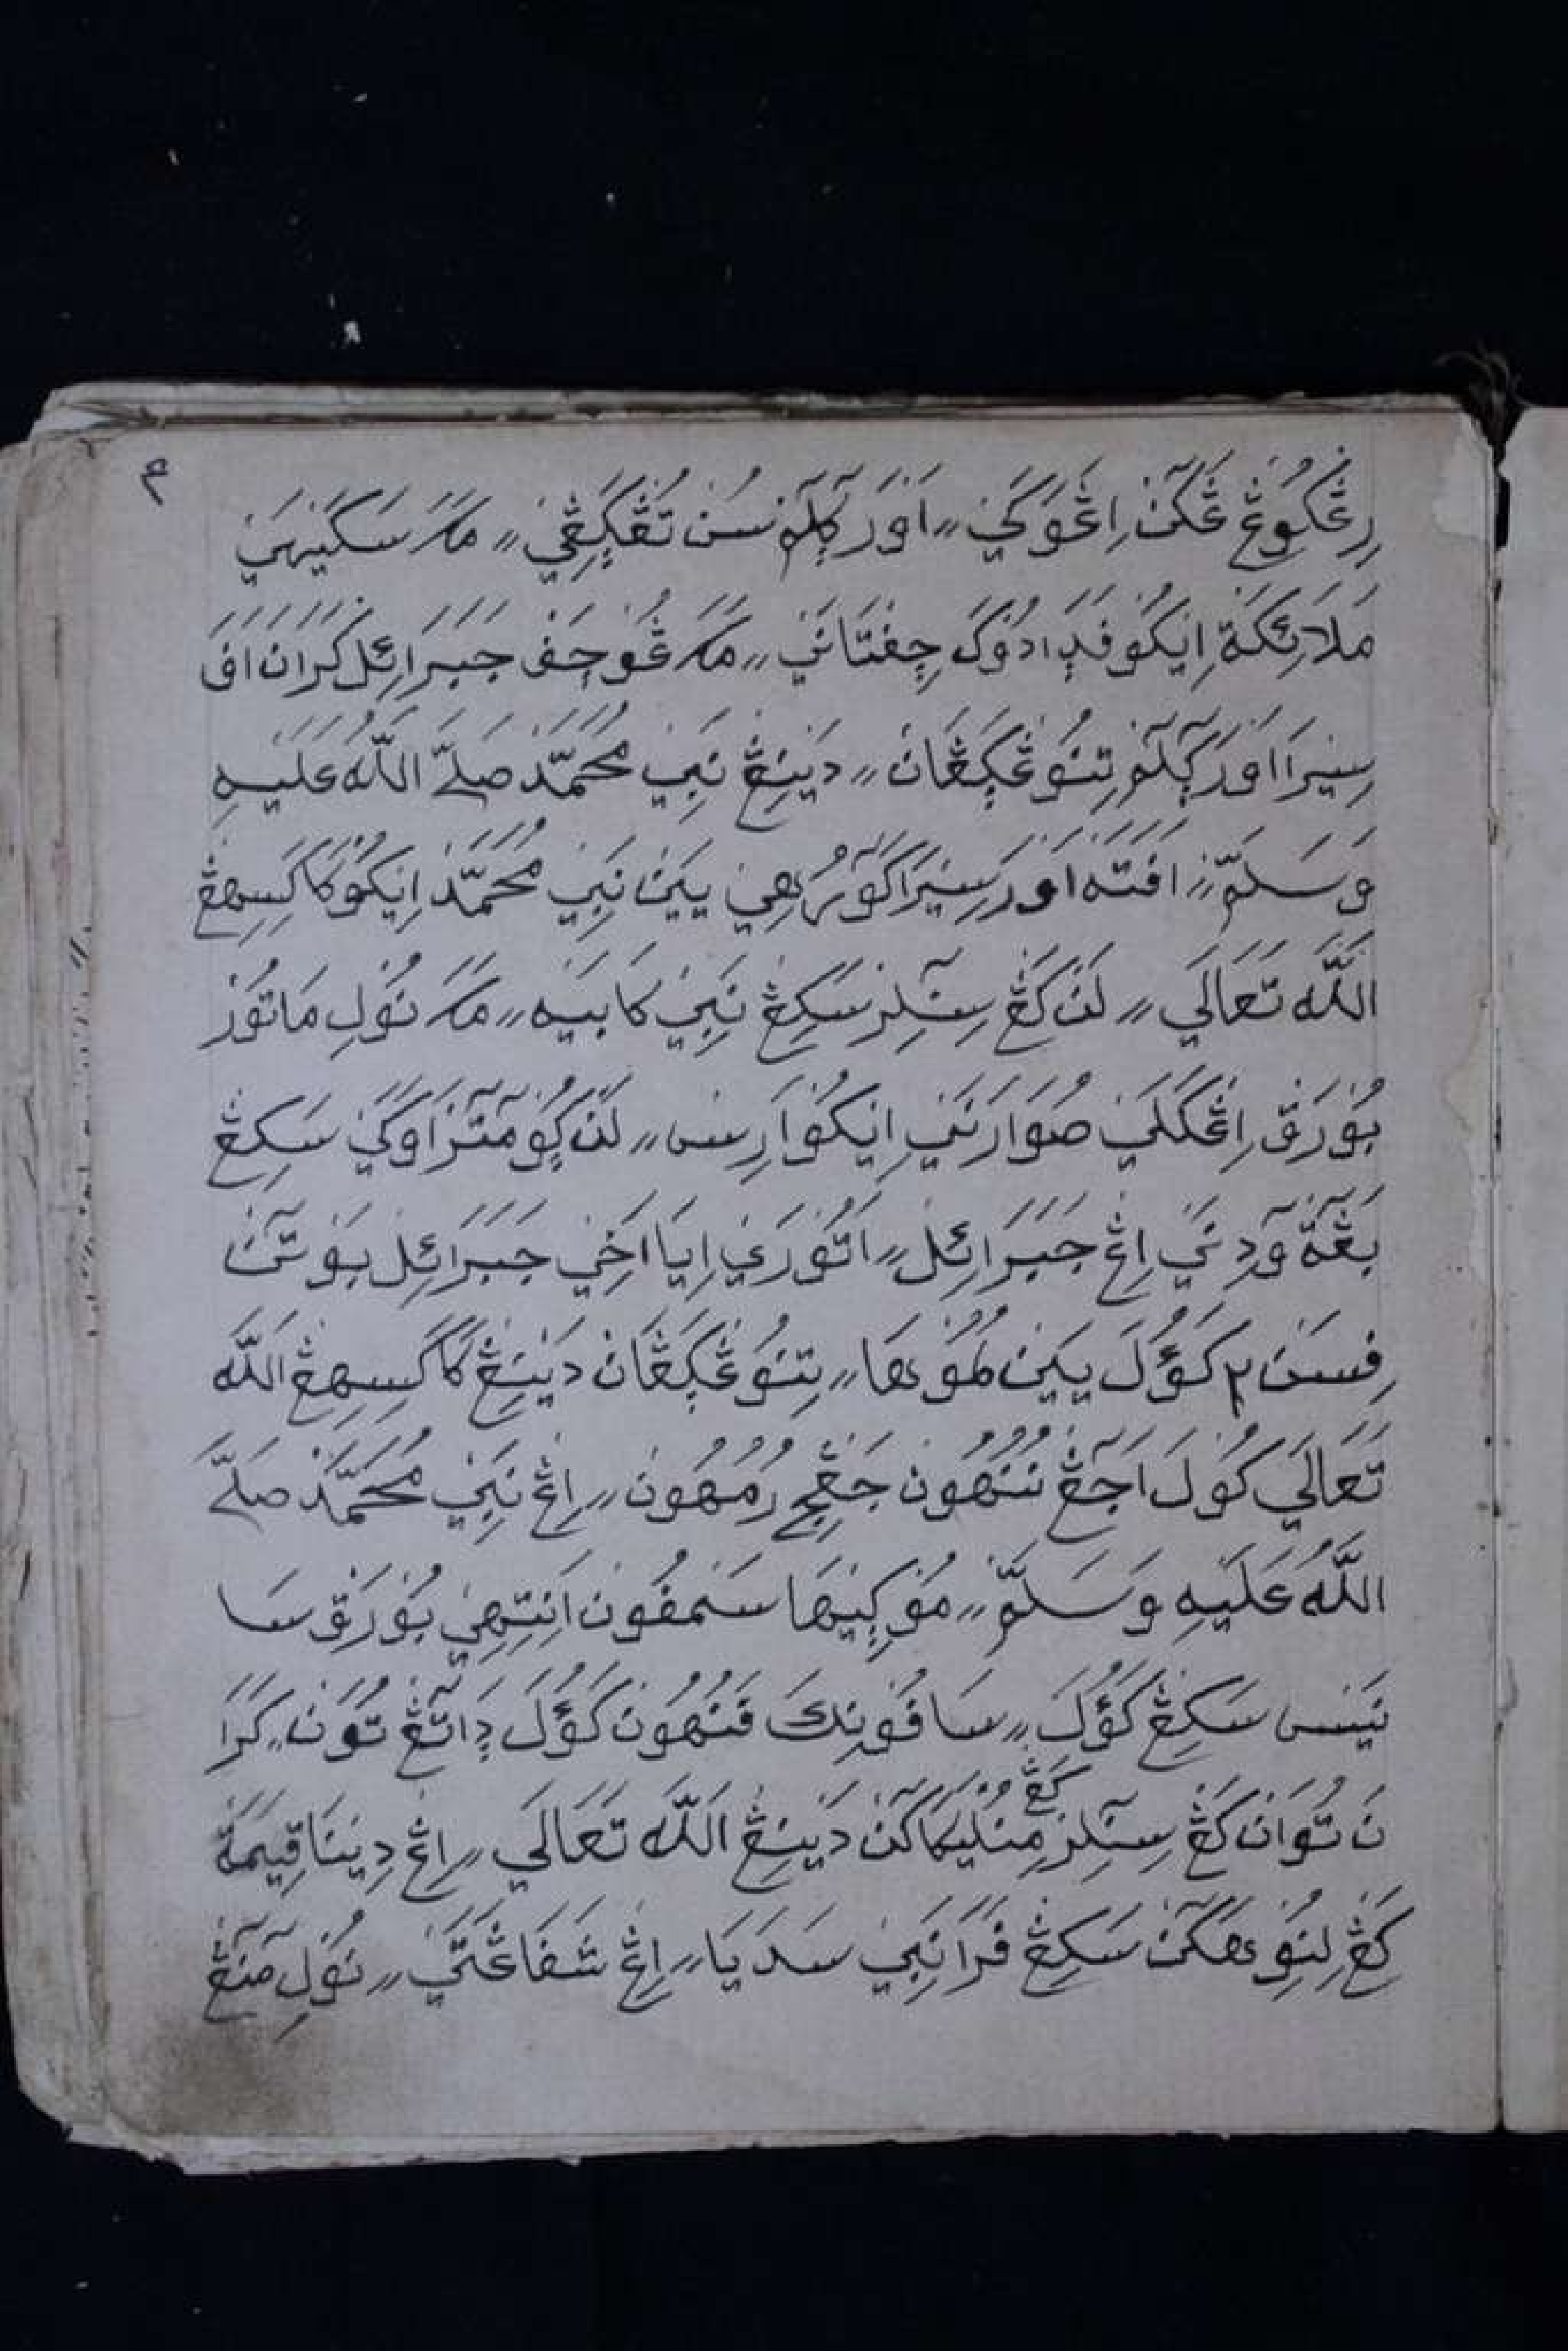 م
رِڠْكُوڠْ ڠَكٓنْ اِڠْوَكَنِ ٫٫ اَوْرَ كٓلَمْ سُنْ تُڠْڮَڠِيْ ٫٫ مَكَ سَكَيْهَيْ
مَلَائِكَةْ اِيْكُو فَدَ ادُوْكَ چِفْتَانَيْ ٫٫ مَكَ ڠُوْچَفْ جَبَرَائِلْ كَرَانَ اَفَ
سِيْرَا اَوْرَ كٓلٓمْ تِنُوْڠْڮَڠَانْ ٫٫ دَيْنِيْڠْ نَبِيْ مُحَمَّدْ صَلَّى اللّٰهُ عَلَيْهِ
وَسَلَّمْ ٫٫ اَفَتَهْ اَوْرَ سِيْرَا كَوْرُهِيْ يَيْنْ نَبِيْ مُحَمَّدْ اِيْكُوْ كَاكَسِهِڠْ
اللّٰه تَعَالَى ٫٫ لَنْ كَڠْ سِنٓلِرْ سَكِڠْ نَبِيْ كَابَيْهْ ٫٫ مَكَ نُوْلِ مَاتُوْرْ
بُوْرَقْ اِڠْكَلَيْ صُوَارَنَيْ اِيْكُوْ اَرِسْ ٫٫ لَنْ ڮُومٓتٓرْ اَوَكَيْ سَكِڠْ
بَڠٓةْ وٓدِنَيْ اِڠْ جَبَرَائِلْ ٫٫ اَتُوْرَيْ اِيَا اَخِيْ جَبَرَائِلْ بَوْتٓنْ
فِسَنْ ٢ كَوُلَ يَيْنْ لُمُوْهَا ٫٫ تِنُوْڠْڮَڠَانْ دَيْنِيْڠْ كَاكَسِهِڠْ اللّٰه
تَعَالَى كَوُلَ اَجٓڠْ نُنُهُوْنْ جَڠْجِ رُمُهُوْنْ ٫٫ اِڠْ نَبِيْ مُحَمَّدْ صَلَّى
اللّٰهُ عَلَيْهِ وَسَلَّمْ ٫٫ مَوْڮِيْهَا سَمْفُوْنْ اَنْتِهِيْ بُوْرَقْ سَا
نَيْسْ سَكِڠْ كَوُلَ ٫٫ سَافُوْنِكَ فَنُهُوْنْ كَوُلَ دَاتٓڠْ تُوَنْ ٫٫ كَرَا
نَ تُوَانْ كَڠْ سِنٓلِرْ كَڠْ مِنُلْيَاكَكٓنْ دَيْنِيْڠْ اللّٰه تَعَالَى ٫٫ اِڠْ دِيْنَا قِيَمَةْ
كَڠْ لِنُوِهَكٓنْ سَكِڠْ فَرَا نَبِيْ سَدَيَا ٫٫ اِڠْ شَفَاعَتَيْ ٫٫ نُوْلِ مٓنٓڠْ